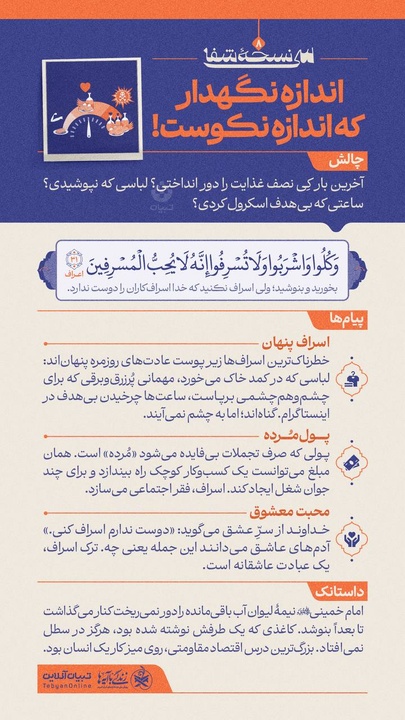 ۸
نسخهٔ شفا
اندازه نگهدار
که اندازه نکوست!
چالش
آخرین بار کِی نصف غذایت را دور انداختی؟ لباسی که نپوشیدی؟
ساعتی که بی‌هدف اسکرول کردی؟
وَكُلُوا وَاشْرَبُوا وَلَا تُسْرِفُوا إِنَّهُ لَا يُحِبُّ الْمُسْرِفِينَ
۳۱
اعراف
بخورید و بنوشید؛ ولی اسراف نکنید که خدا اسراف‌کاران را دوست ندارد.
پیام‌ها
اسراف پنهان
خطرناک‌ترین اسراف‌ها زیر پوست عادت‌های روزمره پنهان‌اند:
لباسی که در کمد خاک می‌خورد، مهمانی پُرزرق‌وبرقی که برای
چشم‌وهم‌چشمی برپاست، ساعت‌ها چرخیدن بی‌هدف در
اینستاگرام. گناه‌اند؛ اما به چشم نمی‌آیند.
پــول مُــرده
پـولی که صرف تجملات بی‌فایده می‌شود «مُرده» است. همان
مبلغ می‌توانست یک کسب‌وکار کوچک راه بیندازد و برای چند
جوان شغل ایجاد کند. اسراف، فقر اجتماعی می‌سازد.
محبت معشوق
خـداونـد از سـرِّ عـشـق می‌گوید: «دوست ندارم اسراف کنی.»
آدم‌های عـاشـق مـی‌دانـنـد این جمله یعنی چه. ترک اسراف،
یک عبادت عاشقانه است.
داستانک
امام خمینی نیمهٔ لیوان آب باقی‌مانده را دور نمی‌ریخت کنار می‌گذاشت
تا بعداً بنوشد. کاغذی که یک طرفش نوشته شده بود، هرگز در سطل
نمی‌افتاد. بزرگ‌ترین درس اقتصاد مقاومتی، روی میز کار یک انسان بود.
زندگی با آیه‌ها
تبیان آنلاین
TebyanOnline